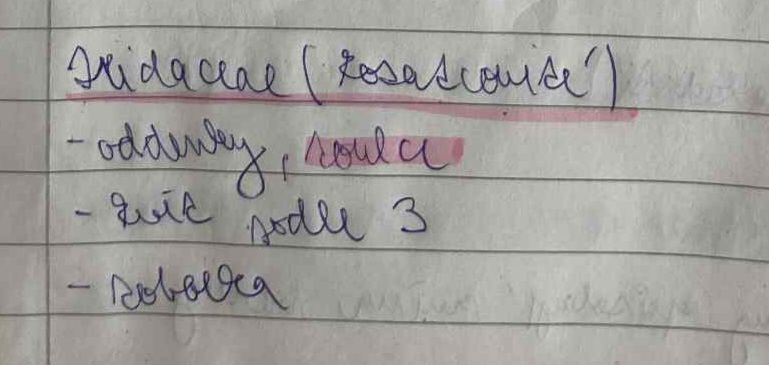 Iridaceae (kosatcovité)
- oddenky,
- květ podle 3
- tobolka